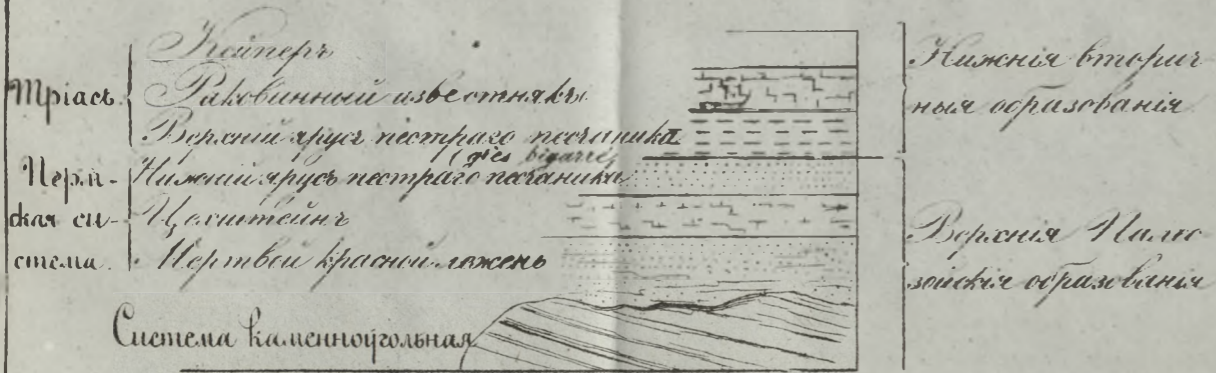 Тріасъ
Кейперъ
Раковинный известнякъ
Верхній ярусъ пестраго песчаника
(grès bigarré)
Нижній ярусъ пестраго песчаника
Перм-
ская си-
стема.
Цехштейнъ
Мертвой красной лежень
Система каменноугольная
Нижнія вторич
ныя образованія
Верхнія Палео
зойскія образованія